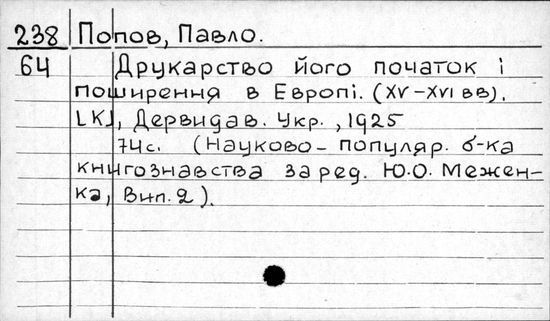 238 Попов, Павло.
64 Друкарство його початок і
поширення в Европі. (XV-XVI вв).
[К], Держвидав. Укр., 1925
74с. (Науково-популяр. б-ка
книгознавства за ред. Ю.О. Межен-
ка, Вип. 2).